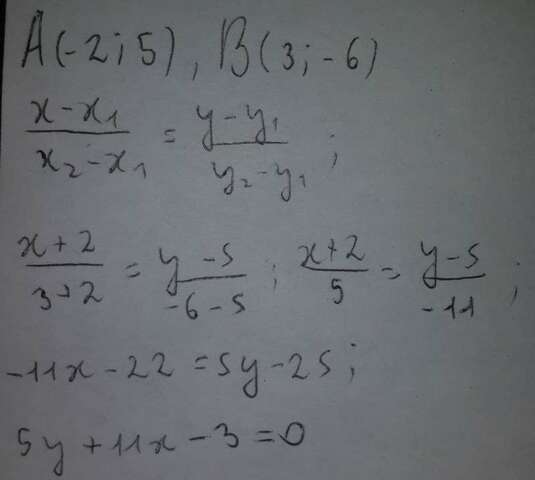 A(-2;5), B(3;-6)
(x-x₁)/(x₂-x₁) = (y-y₁)/(y₂-y₁);
(x+2)/(3+2) = (y-5)/(-6-5); (x+2)/5 = (y-5)/(-11);
-11x-22=5y-25;
5y+11x-3=0